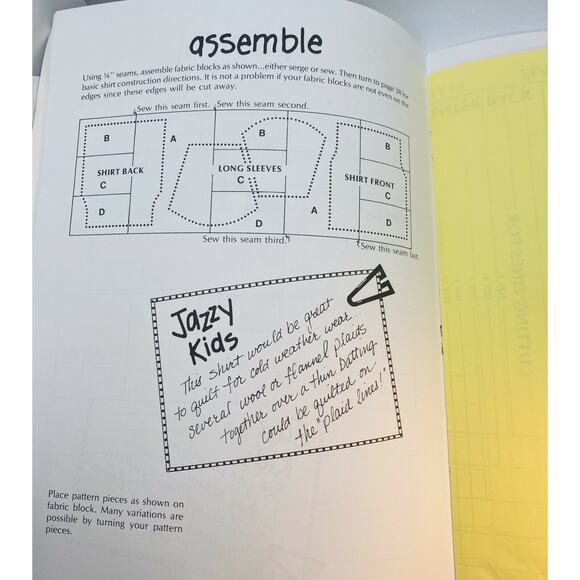 assemble
Using ¼" seams, assemble fabric blocks as shown...either serge or sew. Then turn to page 38 for
basic shirt construction directions. It is not a problem if your fabric blocks are not even on the
edges since these edges will be cut away.
Sew this seam first. Sew this seam second.
B
A
B
B
SHIRT BACK
LONG SLEEVES
SHIRT FRONT
C
C
C
D
D
A
D
Sew this seam third.
Sew this seam last.
Jazzy
Kids
This shirt would be great
to quilt for cold weather wear...
several wool or flannel plaids
together over a thin batting
could be quilted on
the "plaid lines!"
Place pattern pieces as shown on
fabric block. Many variations are
possible by turning your pattern
pieces.
CENTER BACK
CUTTING LINES FOR